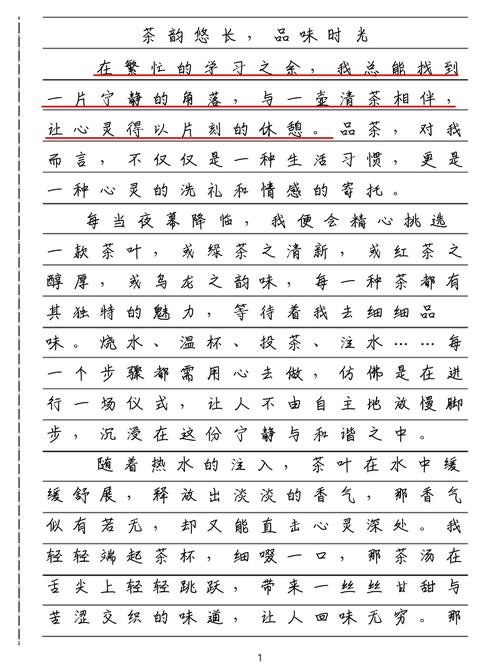 茶韵悠长，品味时光
在繁忙的学习之余，我总能找到
一片宁静的角落，与一壶清茶相伴，
让心灵得以片刻的休憩。品茶，对我
而言，不仅仅是一种生活习惯，更是
一种心灵的洗礼和情感的寄托。
每当夜幕降临，我便会精心挑选
一款茶叶，或绿茶之清新，或红茶之
醇厚，或乌龙之韵味，每一种茶都有
其独特的魅力，等待着我去细细品
味。烧水、温杯、投茶、注水……每
一个步骤都需用心去做，仿佛是在进
行一场仪式，让人不由自主地放慢脚
步，沉浸在这份宁静与和谐之中。
随着热水的注入，茶叶在水中缓
缓舒展，释放出淡淡的香气，那香气
似有若无，却又能直击心灵深处。我
轻轻端起茶杯，细啜一口，那茶汤在
舌尖上轻轻跳跃，带来一丝丝甘甜与
苦涩交织的味道，让人回味无穷。那
1